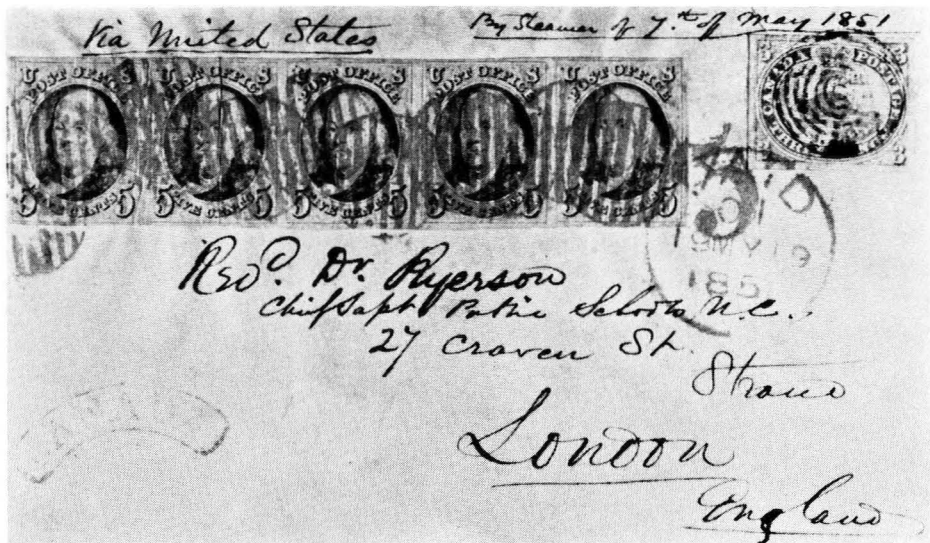 Via United States
By Steamer of 7th of May 1851
U S
POST OFFICE
5 FIVE CENTS 5
U S
POST OFFICE
5 FIVE CENTS 5
U S
POST OFFICE
5 FIVE CENTS 5
U S
POST OFFICE
5 FIVE CENTS 5
U S
POST OFFICE
5 FIVE CENTS 5
3 3
CANADA POSTAGE
3 3
PAID
MY 19
185
Revd. Dr. Ryerson
Chief Supt Public Schools U.C.
27 Craven St.
Strand
London
England
CANADA